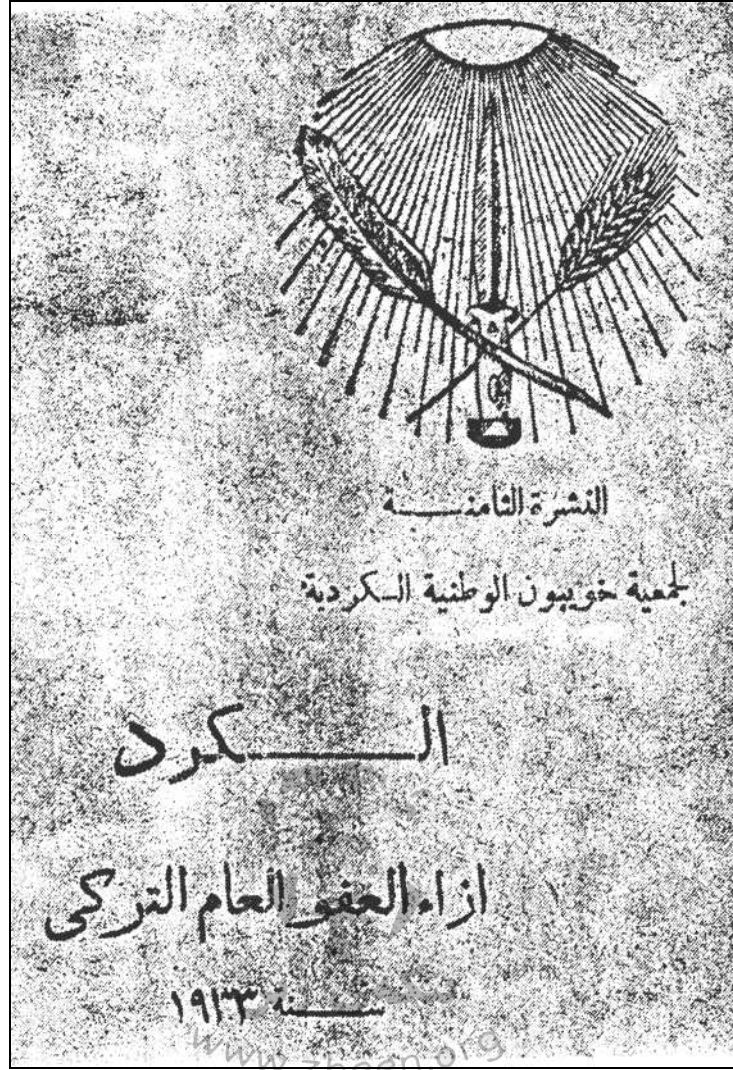 النشرة الثامنـــــة
لجمعية خويبون الوطنية الـكردية
الــــــكرد
ازاء العفو العام التركى
ســـنة ١٩٣٣
www.zheen.org